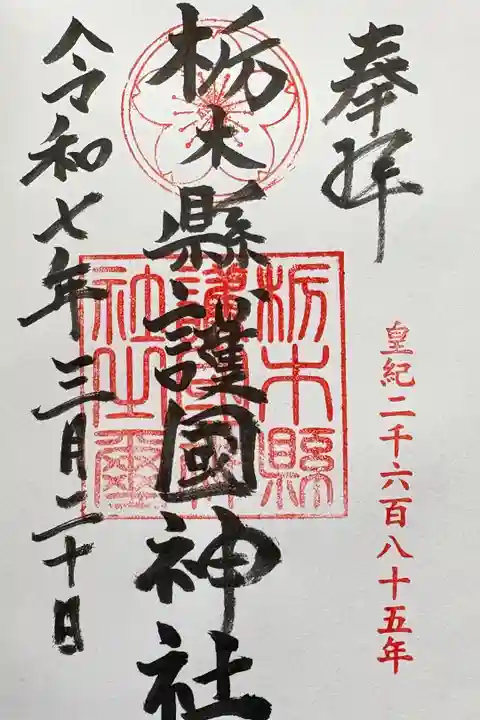 奉拝
皇紀二千六百八十五年
栃木縣護國神社
栃木縣
護國神
社之璽
令和七年三月二十日